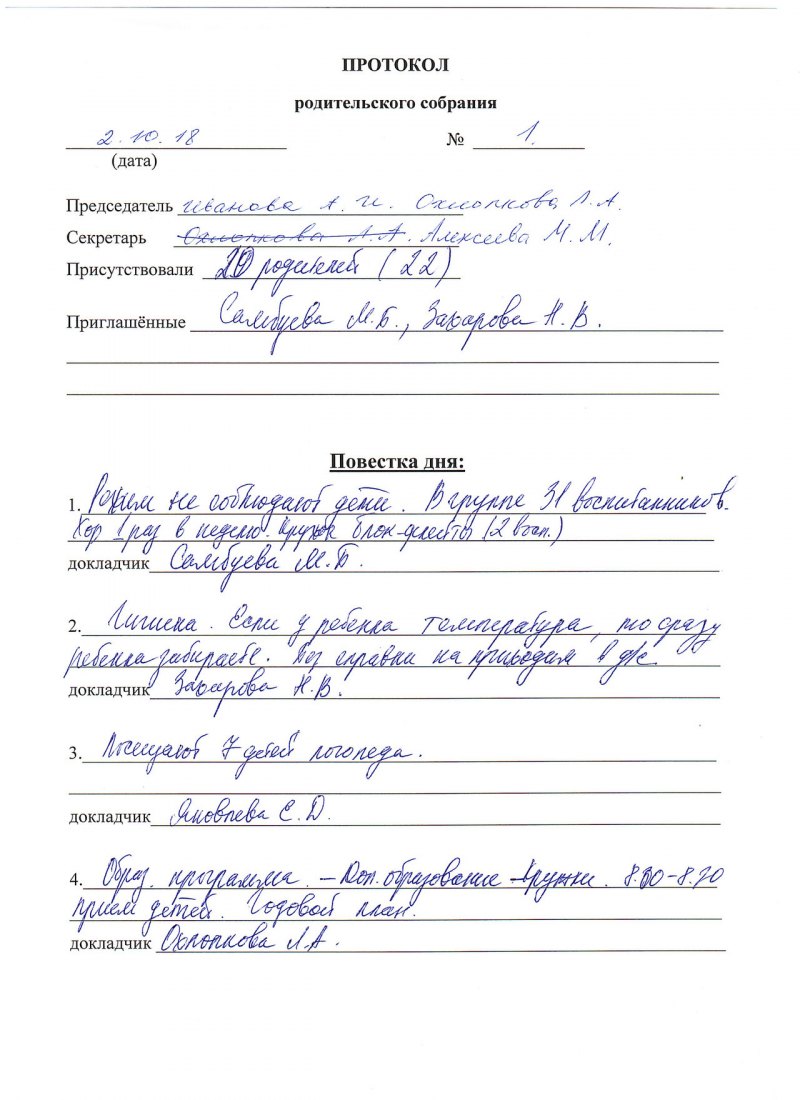 ПРОТОКОЛ
родительского собрания
2.10.18 № 1.
(дата)
Председатель Иванова А. И. Охлопкова Л.А.
Секретарь Охлопкова Л.А. Алексеева М.М.
Присутствовали родителей (22)
Приглашённые Самбуева М.Б., Захарова Н.В.
Повестка дня:
1. Режим не соблюдают дети. В группе 31 воспитанников.
Хор 1 раз в неделю. Кружок блок-флейты (2 восп.)
докладчик Самбуева М.Б.
2. Гигиена. Если у ребенка температура, то сразу
ребенка забираете. Без справки не приводим в д/с
докладчик Захарова Н.В.
3. Посещают 7 детей логопеда.
докладчик Яковлева С.Д.
4. Образ. программа. – Доп. образование кружки.
прием детей. Годовой план.
докладчик Охлопкова Л.А.